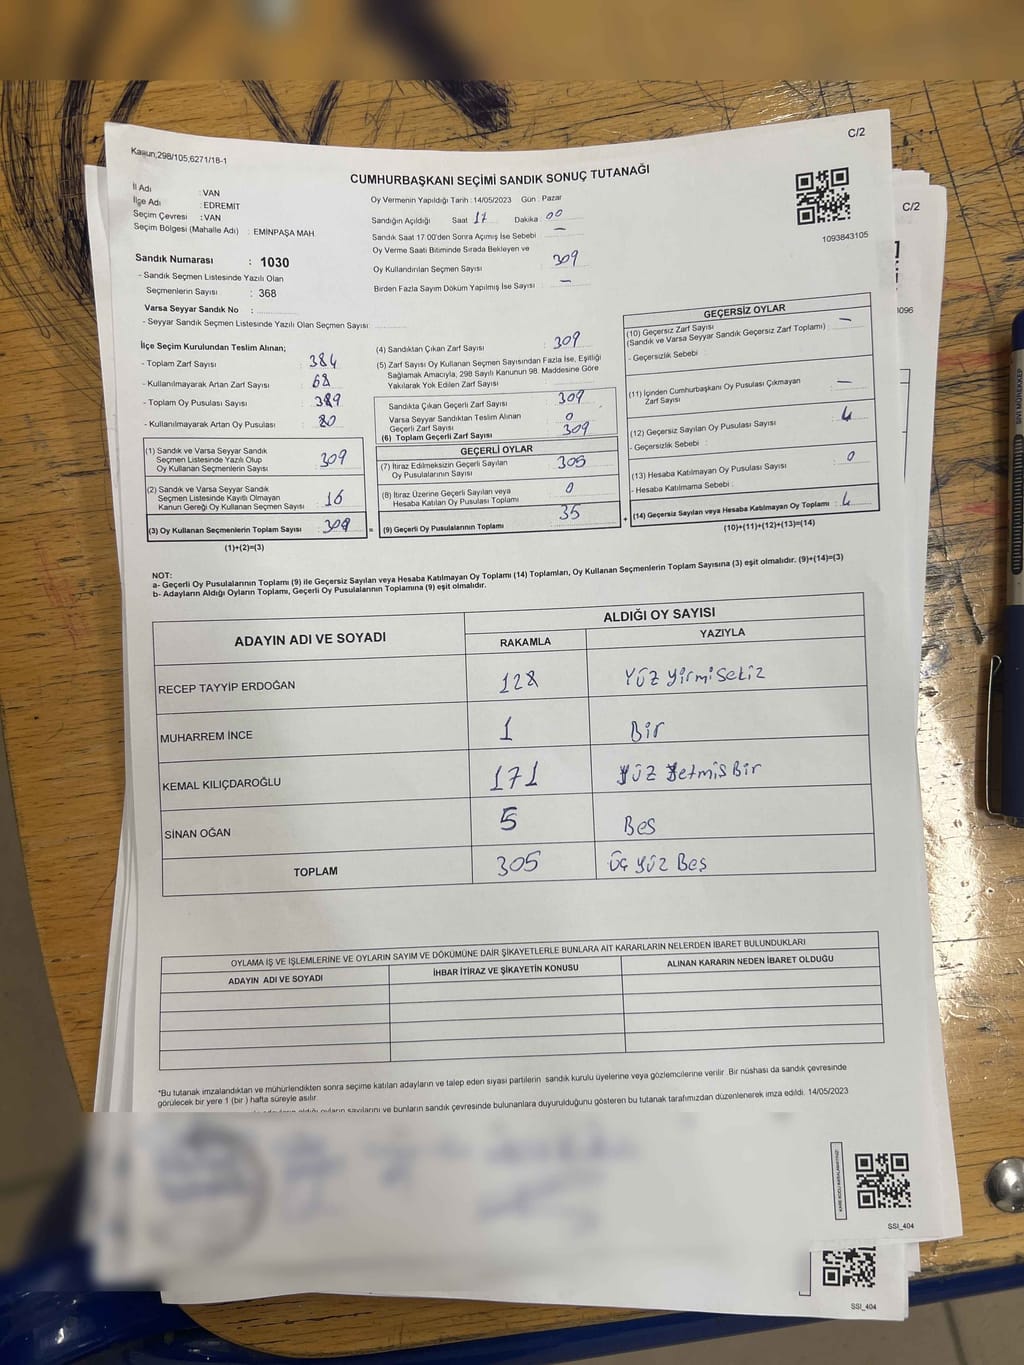 C/2
Kanun;298/105,6271/18-1
CUMHURBAŞKANI SEÇİMİ SANDIK SONUÇ TUTANAĞI
İl Adı : VAN
İlçe Adı : EDREMIT
Seçim Çevresi : VAN
Seçim Bölgesi (Mahalle Adı) : EMİNPAŞA MAH.
Oy Vermenin Yapıldığı Tarih : 14/05/2023 Gün : Pazar
Sandığın Açıldığı Saat 17 Dakika : 00
Sandık Saat 17:00'den Sonra Açmış İse Sebebi : —
Oy Verme Saati Bitiminde Sırada Bekleyen ve
Oy Kullandırılan Seçmen Sayısı 309
Birden Fazla Sayım Döküm Yapılmış İse Sayısı : —
1093843105
C/2
1096
Sandık Numarası : 1030
- Sandık Seçmen Listesinde Yazılı Olan
Seçmenlerin Sayısı : 368
Varsa Seyyar Sandık No :
- Seyyar Sandık Seçmen Listesinde Yazılı Olan Seçmen Sayısı:
İlçe Seçim Kurulundan Teslim Alınan;
- Toplam Zarf Sayısı : 384
- Kullanılmayarak Artan Zarf Sayısı : 68
- Toplam Oy Pusulası Sayısı : 389
- Kullanılmayarak Artan Oy Pusulası : 80
(1) Sandık ve Varsa Seyyar Sandık
Seçmen Listesinde Yazılı Olup
Oy Kullanan Seçmenlerin Sayısı : 309
(2) Sandık ve Varsa Seyyar Sandık
Seçmen Listesinde Kayıtlı Olmayan
Kanun Gereği Oy Kullanan Seçmen Sayısı : 16
(3) Oy Kullanan Seçmenlerin Toplam Sayısı : 309 =
(1)+(2)=(3)
(4) Sandıktan Çıkan Zarf Sayısı : 309
(5) Zarf Sayısı Oy Kullanan Seçmen Sayısından Fazla İse, Eşitliği
Sağlamak Amacıyla, 298 Sayılı Kanunun 98. Maddesine Göre
Yakılarak Yok Edilen Zarf Sayısı :
Sandıkta Çıkan Geçerli Zarf Sayısı : 309
Varsa Seyyar Sandıktan Teslim Alınan
Geçerli Zarf Sayısı : 0
(6) Toplam Geçerli Zarf Sayısı 309
GEÇERLİ OYLAR
(7) İtiraz Edilmeksizin Geçerli Sayılan
Oy Pusulalarının Sayısı : 305
(8) İtiraz Üzerine Geçerli Sayılan veya
Hesaba Katılan Oy Pusulası Toplamı : 0
(9) Geçerli Oy Pusulalarının Toplamı : 35 +
GEÇERSİZ OYLAR
(10) Geçersiz Zarf Sayısı : —
(Sandık ve Varsa Seyyar Sandık Geçersiz Zarf Toplamı)
- Geçersizlik Sebebi :
(11) İçinden Cumhurbaşkanı Oy Pusulası Çıkmayan
Zarf Sayısı : —
(12) Geçersiz Sayılan Oy Pusulası Sayısı : 4
- Geçersizlik Sebebi :
(13) Hesaba Katılmayan Oy Pusulası Sayısı : 0
- Hesaba Katılmama Sebebi :
(14) Geçersiz Sayılan veya Hesaba Katılmayan Oy Toplamı : 4
(10)+(11)+(12)+(13)=(14)
NOT:
a- Geçerli Oy Pusulalarının Toplamı (9) ile Geçersiz Sayılan veya Hesaba Katılmayan Oy Toplamı (14) Toplamları, Oy Kullanan Seçmenlerin Toplam Sayısına (3) eşit olmalıdır. (9)+(14)=(3)
b- Adayların Aldığı Oyların Toplamı, Geçerli Oy Pusulalarının Toplamına (9) eşit olmalıdır.
ADAYIN ADI VE SOYADI ALDIĞI OY SAYISI
RAKAMLA YAZIYLA
RECEP TAYYİP ERDOĞAN 128 Yüz yirmi sekiz
MUHARREM İNCE 1 Bir
KEMAL KILIÇDAROĞLU 171 Yüz Yetmiş Bir
SİNAN OĞAN 5 Beş
TOPLAM 305 Üç yüz Beş
OYLAMA İŞ VE İŞLEMLERİNE VE OYLARIN SAYIM VE DÖKÜMÜNE DAİR ŞİKAYETLERLE BUNLARA AİT KARARLARIN NELERDEN İBARET BULUNDUKLARI
ADAYIN ADI VE SOYADI İHBAR İTİRAZ VE ŞİKAYETİN KONUSU ALINAN KARARIN NEDEN İBARET OLDUĞU
*Bu tutanak imzalandıktan ve mühürlendikten sonra seçime katılan adayların ve talep eden siyasi partilerin sandık kurulu üyelerine veya gözlemcilerine verilir. Bir nüshası da sandık çevresinde
görülecek bir yere 1 (bir ) hafta süreyle asılır.
aldığı oyların sayılarını ve bunların sandık çevresinde bulunanlara duyurulduğunu gösteren bu tutanak tarafımızdan düzenlenerek imza edildi. 14/05/2023
SSI_404
SSI_404